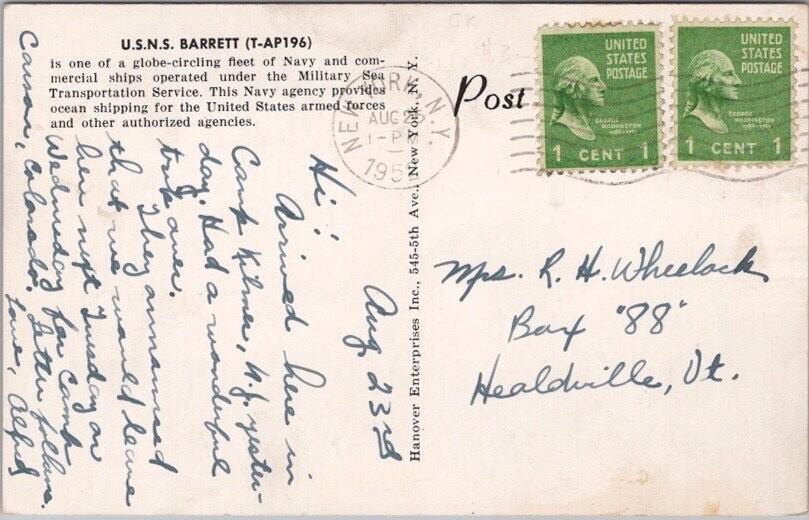 U.S.N.S. BARRETT (T-AP196)
is one of a globe-circling fleet of Navy and com-
mercial ships operated under the Military Sea
Transportation Service. This Navy agency provides
ocean shipping for the United States armed forces
and other authorized agencies.
Aug 23rd
Hi!
Arrived here in
Camp Kilmer, N.J. yester-
day. Had a wonderful
trip over.
They announced
that we would leave
here next Tuesday or
Wednesday for Camp
Carson, Colorado. Letter follows.
Love, Alfred
Hanover Enterprises Inc., 545-5th Ave., New York, N. Y.
Post
NEW YORK, N.Y.
AUG 25
1-PM
195
UNITED
STATES
POSTAGE
GEORGE
WASHINGTON
1789-1797
1 CENT 1
UNITED
STATES
POSTAGE
GEORGE
WASHINGTON
1789-1797
1 CENT 1
CK
Mrs. R. H. Wheelock
Box "88"
Healdville, Vt.